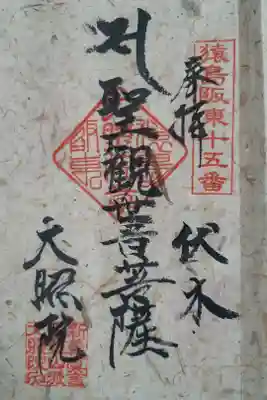 猿島阪東十五番
奉拝
伏木
聖觀世音菩薩
天照院